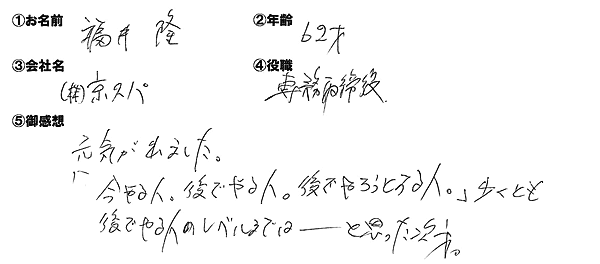 ①お名前 福井 隆 ②年齢 62才
③会社名 (株)京スパ ④役職 専務取締役
⑤御感想
元気が出ました。
「今やる人。後でやる人。後でやろうとする人。」少くとも
後でやる人のレベルまでは――と思った次第。